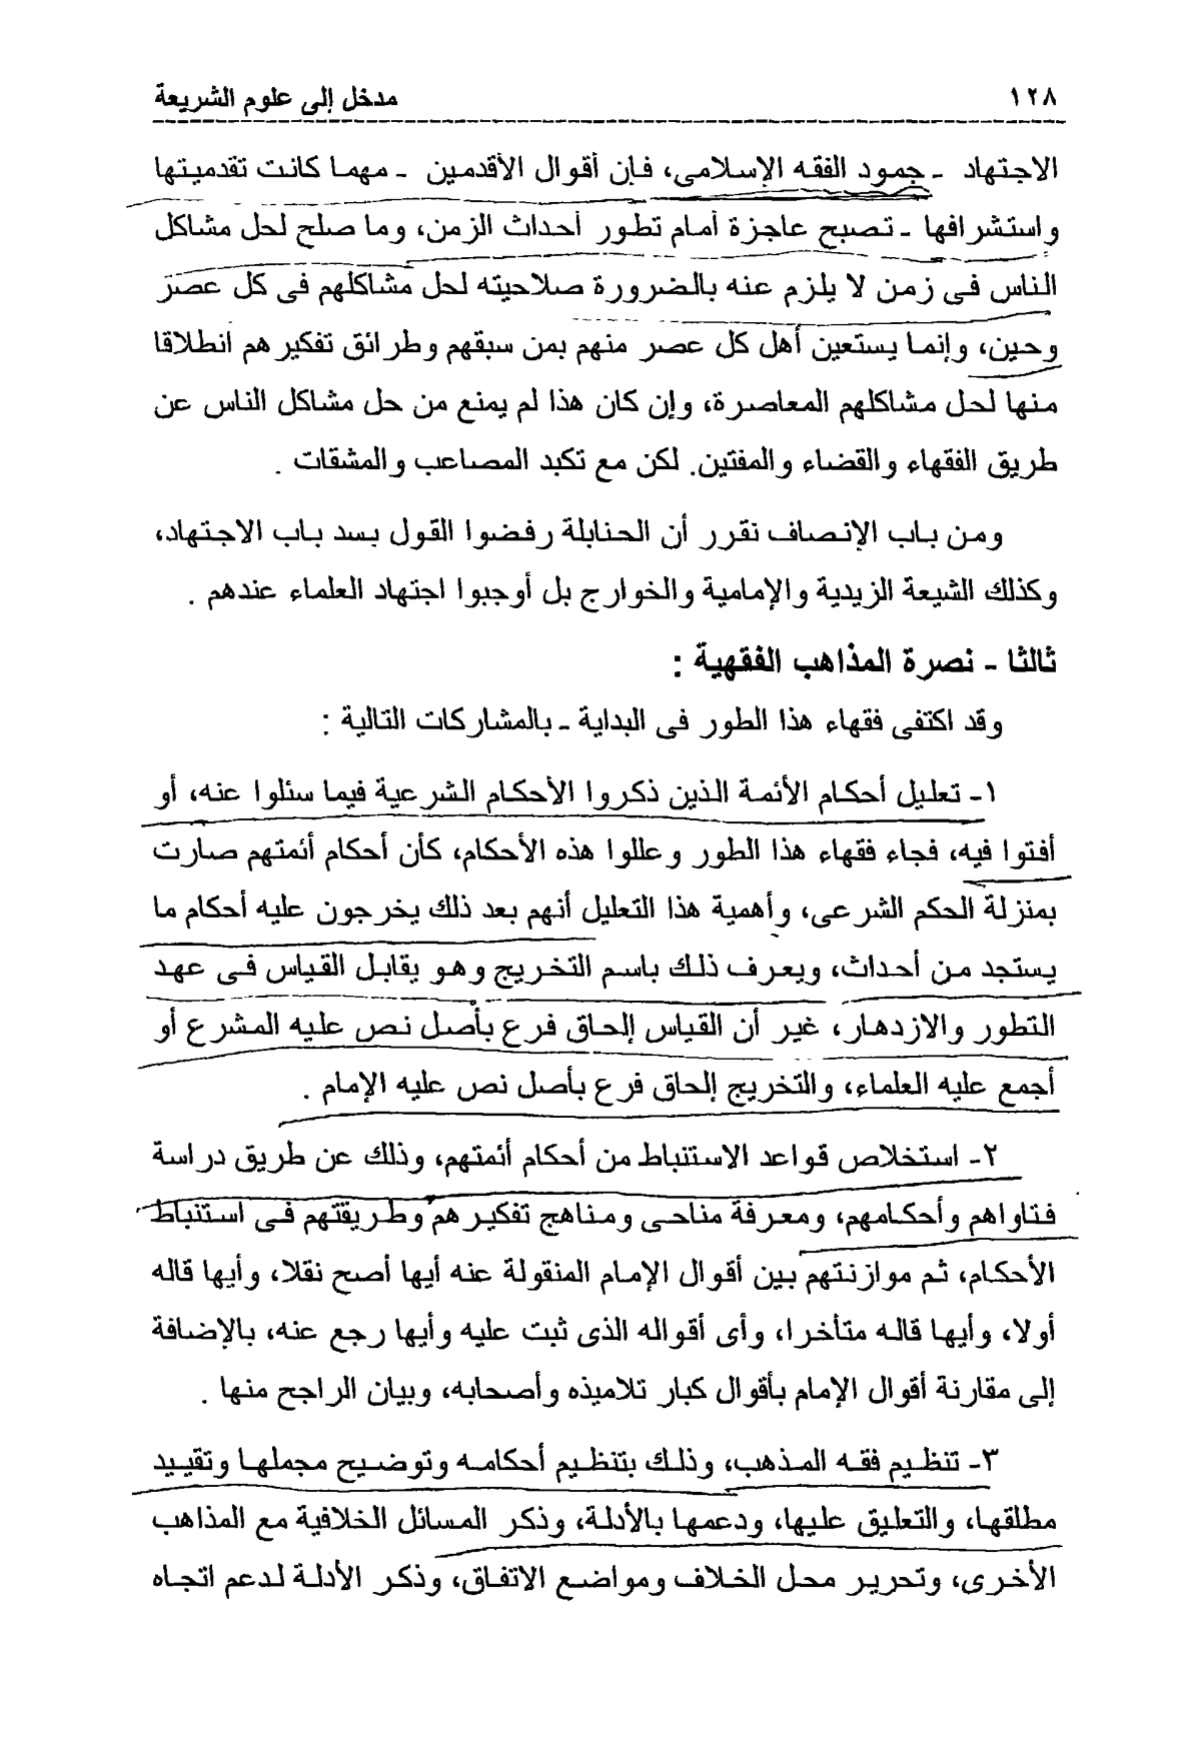 ١٢٨ مدخل إلى علوم الشريعة
الاجتهاد - جمود الفقه الإسلامى، فإن أقوال الأقدمين - مهما كانت تقدميتها
واستشرافها - تصبح عاجزة أمام تطور أحداث الزمن، وما صلح لحل مشاكل
الناس فى زمن لا يلزم عنه بالضرورة صلاحيته لحل مشاكلهم فى كل عصر
وحين، وإنما يستعين أهل كل عصر منهم بمن سبقهم وطرائق تفكيرهم انطلاقا
منها لحل مشاكلهم المعاصرة، وإن كان هذا لم يمنع من حل مشاكل الناس عن
طريق الفقهاء والقضاء والمفتين. لكن مع تكبد المصاعب والمشقات .
ومن باب الإنصاف نقرر أن الحنابلة رفضوا القول بسد باب الاجتهاد،
وكذلك الشيعة الزيدية والإمامية والخوارج بل أوجبوا اجتهاد العلماء عندهم .
ثالثا - نصرة المذاهب الفقهية :
وقد اكتفى فقهاء هذا الطور فى البداية - بالمشاركات التالية :
١- تعليل أحكام الأئمة الذين ذكروا الأحكام الشرعية فيما سئلوا عنه، أو
أفتوا فيه، فجاء فقهاء هذا الطور وعللوا هذه الأحكام، كأن أحكام أئمتهم صارت
بمنزلة الحكم الشرعى، وأهمية هذا التعليل أنهم بعد ذلك يخرجون عليه أحكام ما
يستجد من أحداث، ويعرف ذلك باسم التخريج وهو يقابل القياس فى عهد
التطور والازدهار، غير أن القياس إلحاق فرع بأصل نص عليه المشرع أو
أجمع عليه العلماء، والتخريج إلحاق فرع بأصل نص عليه الإمام .
٢- استخلاص قواعد الاستنباط من أحكام أئمتهم، وذلك عن طريق دراسة
فتاواهم وأحكامهم، ومعرفة مناحى ومناهج تفكيرهم وطريقتهم فى استنباط
الأحكام، ثم موازنتهم بين أقوال الإمام المنقولة عنه أيها أصح نقلا، وأيها قاله
أولا، وأيها قاله متأخرا، وأى أقواله الذى ثبت عليه وأيها رجع عنه، بالإضافة
إلى مقارنة أقوال الإمام بأقوال كبار تلاميذه وأصحابه، وبيان الراجح منها .
٣- تنظيم فقه المذهب، وذلك بتنظيم أحكامه وتوضيح مجملها وتقييد
مطلقها، والتعليق عليها، ودعمها بالأدلة، وذكر المسائل الخلافية مع المذاهب
الأخرى، وتحرير محل الخلاف ومواضع الاتفاق، وذكر الأدلة لدعم اتجاه